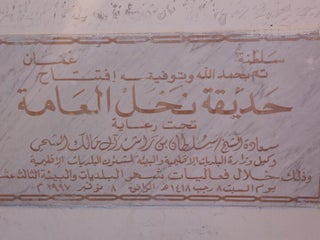 سلطنة عمان
تم بحمد الله وتوفيقه إفتتاح
حديقة نخل العامة
تحت رعاية
سعادة الشيخ / سلطان بن راشد آل مالك الشحي
وكيل وزارة البلديات الإقليمية والبيئة لشئون البلديات الإقليمية
وذلك خلال فعاليات شهر البلديات والبيئة الثالث عشر
يوم السبت ٨ رجب ١٤١٨هـ الموافق ٨ نوفمبر ١٩٩٧م